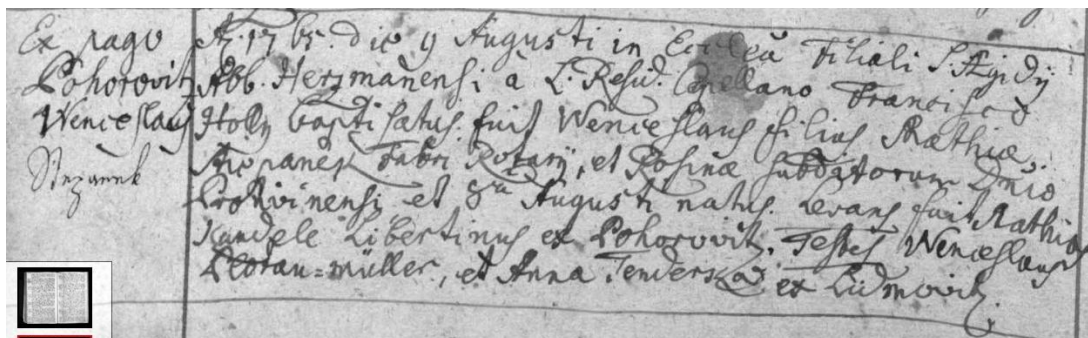 Ex pago
Pohorovitz
Wenceslaus
Stepanek
Ao. 1765. die 9 Augusti in Ecclea Filiali S. Ægidy
Abb. Herzmanensi a L. Resid. Capellano Francisco
Holly baptisatus fuit Wenceslaus filius Mathiæ
Stiepanek Fabri Rotarij, et Rosinæ subdatorum Dnio
Protivinensi et 8va Augusti natus. Levans fuit Mathias
Kandele Libertinus ex Pohorovitz, Testes Wenceslaus
müller, et Anna ex